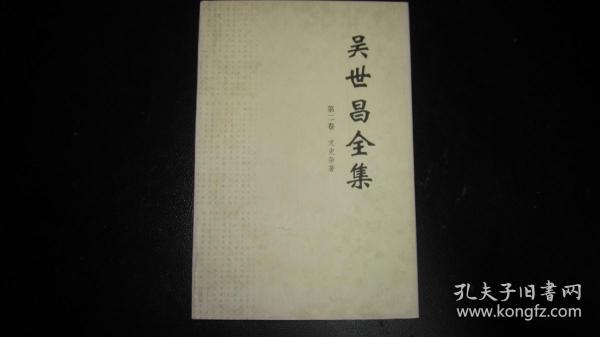 吴世昌全集
第二卷 文史杂著
孔夫子旧書网
www.kongfz.com